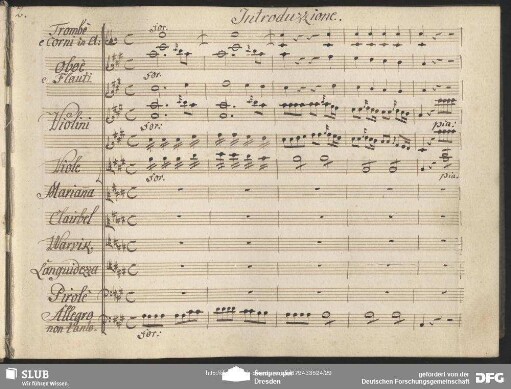 2.
Introduzzione.
Trombe
e Corni in A:
for.
Oboè
e Flauti
for.
Violini
for:
pia:
Viole
for.
pia.
Mariana
Clairbel
Warvik
Languidezza
Pirolè
Allegro
non tanto.
for:
SLUB
Wir führen Wissen.
Dresden
gefördert von der
Deutschen Forschungsgemeinschaft
DFG